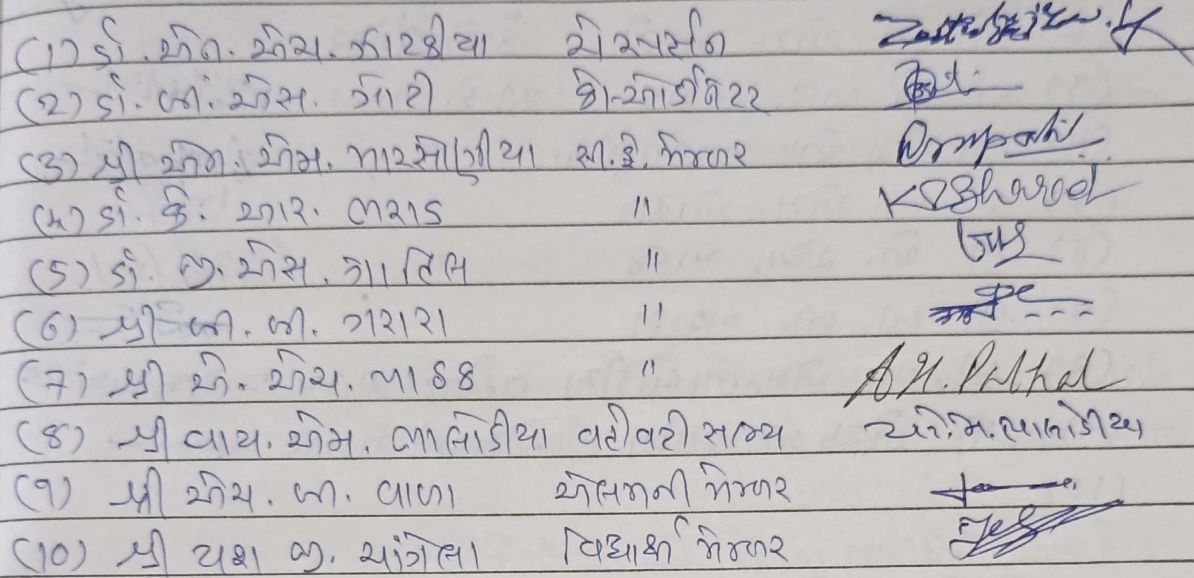 (1) ડૉ. એન. એચ. ઝાટકીયા ચેરપર્સન
(2) ડૉ. બી. એસ. ગાટી કો-ઓર્ડીનેટર
(3) શ્રી એન. એમ. મારસોણીયા સી.ડી. મેમ્બર
(4) ડૉ. કે. આર. ભરાડ "  K R Bharad
(5) ડૉ. જી. એસ. ગાતિલ "
(6) શ્રી બી. બી. ગરારા "
(7) શ્રી એ. એચ. પાઠક " A H. Pathak
(8) શ્રી વાય. એમ. ભાલોડીયા વહીવટી સભ્ય
(9) શ્રી એચ. બી. વાળા એલમની મેમ્બર
(10) શ્રી યશ જી. ચાંગેલા વિદ્યાર્થી મેમ્બર